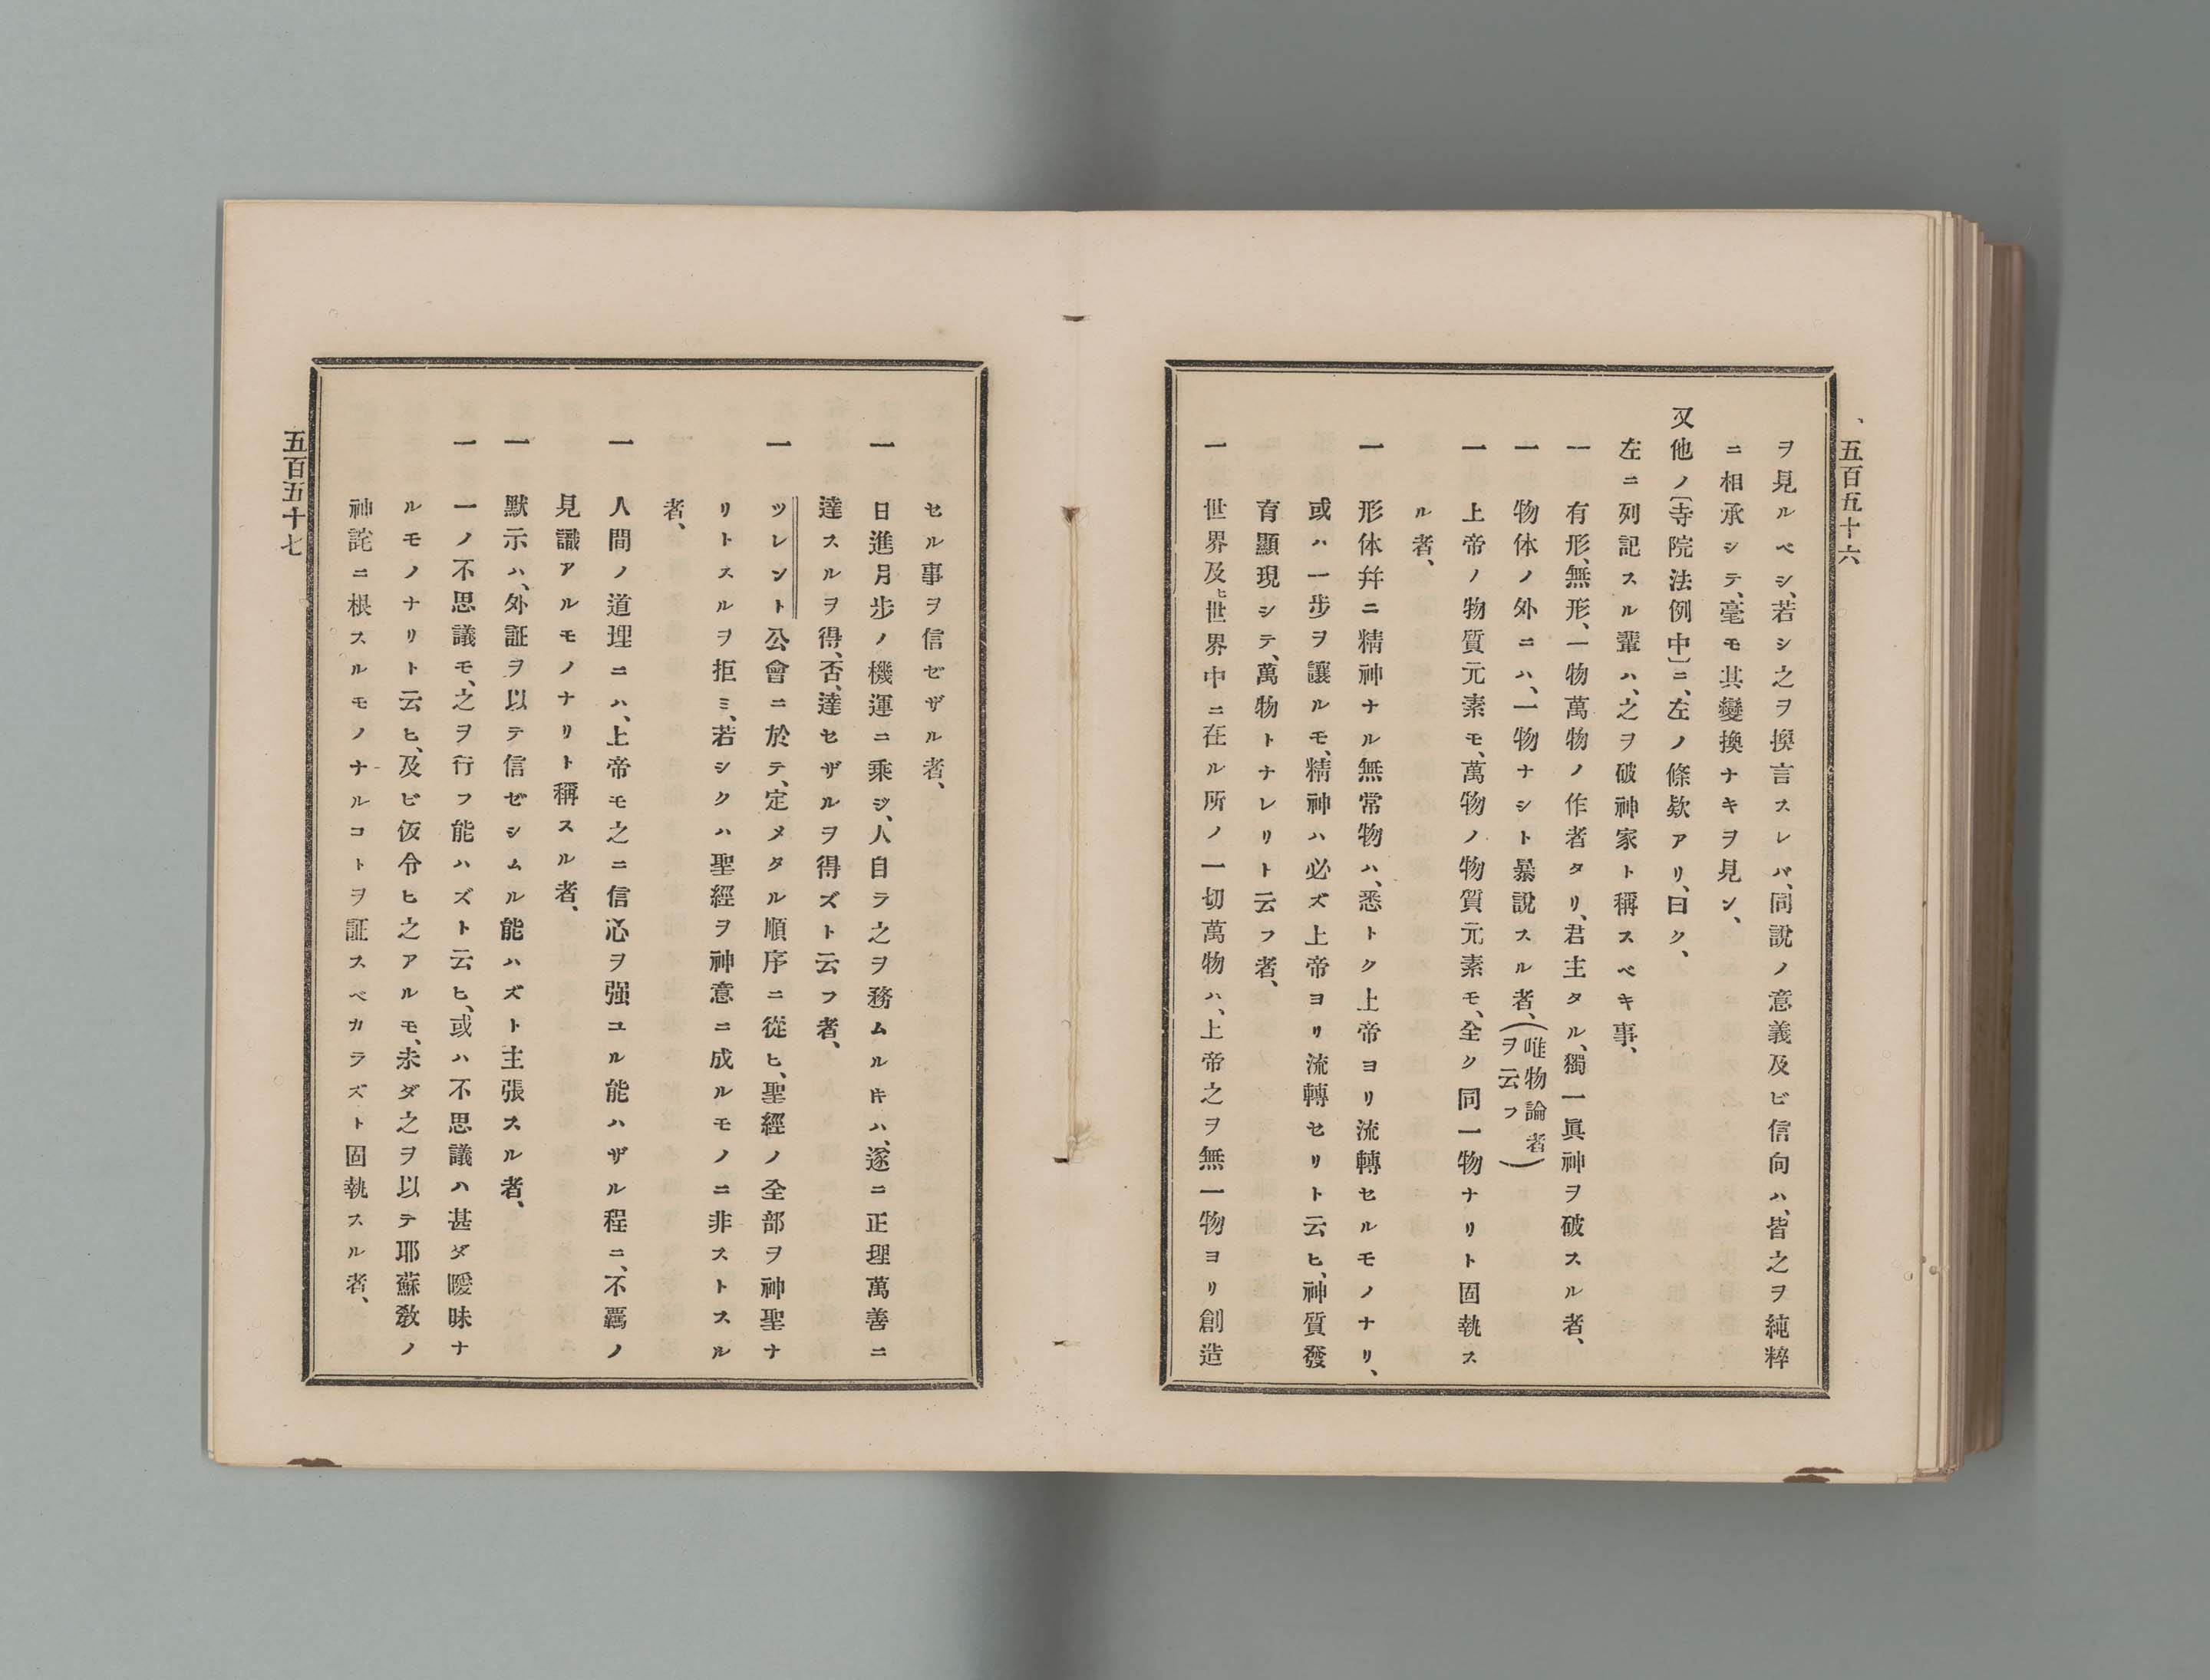 五百五十六
ヲ見ルベシ、若シ之ヲ換言スレバ、同說ノ意義及ビ信向ハ、皆之ヲ純粹
ニ相承シテ、毫モ其變換ナキヲ見ン、
又他ノ〔寺院法例中〕ニ、左ノ條欵アリ、曰ク、
左ニ列記スル輩ハ、之ヲ破神家ト稱スベキ事、
一 有形、無形、一物萬物ノ作者タリ、君主タル、獨一眞神ヲ破スル者、
一 物体ノ外ニハ、一物ナシト暴說スル者、(唯物論者ヲ云フ)
一 上帝ノ物質元素モ、萬物ノ物質元素モ、全ク同一物ナリト固執ス
ル者、
一 形体幷ニ精神ナル無常物ハ、悉トク上帝ヨリ流轉セルモノナリ、
或ハ一步ヲ讓ルモ、精神ハ必ズ上帝ヨリ流轉セリト云ヒ、神質發
育顯現シテ、萬物トナレリト云フ者、
一 世界及ヒ世界中ニ在ル所ノ一切萬物ハ、上帝之ヲ無一物ヨリ創造
セル事ヲ信ゼザル者、
一 日進月步ノ機運ニ乘ジ、人自ラ之ヲ務ムルキハ、遂ニ正理萬善ニ
達スルヲ得、否、達セザルヲ得ズト云フ者、
一 ツレント公會ニ於テ、定メタル順序ニ從ヒ、聖經ノ全部ヲ神聖ナ
リトスルヲ拒ミ、若シクハ聖經ヲ神意ニ成ルモノニ非ストスル
者、
一 人間ノ道理ニハ、上帝モ之ニ信心ヲ强ユル能ハザル程ニ、不羈ノ
見識アルモノナリト稱スル者、
一 默示ハ、外証ヲ以テ信ゼシムル能ハズト主張スル者、
一 一ノ不思議モ、之ヲ行フ能ハズト云ヒ、或ハ不思議ハ甚ダ曖昧ナ
ルモノナリト云ヒ、及ビ仮令ヒ之アルモ、未ダ之ヲ以テ耶蘇敎ノ
神詫ニ根スルモノナルコトヲ証スベカラズト固執スル者、
五百五十七